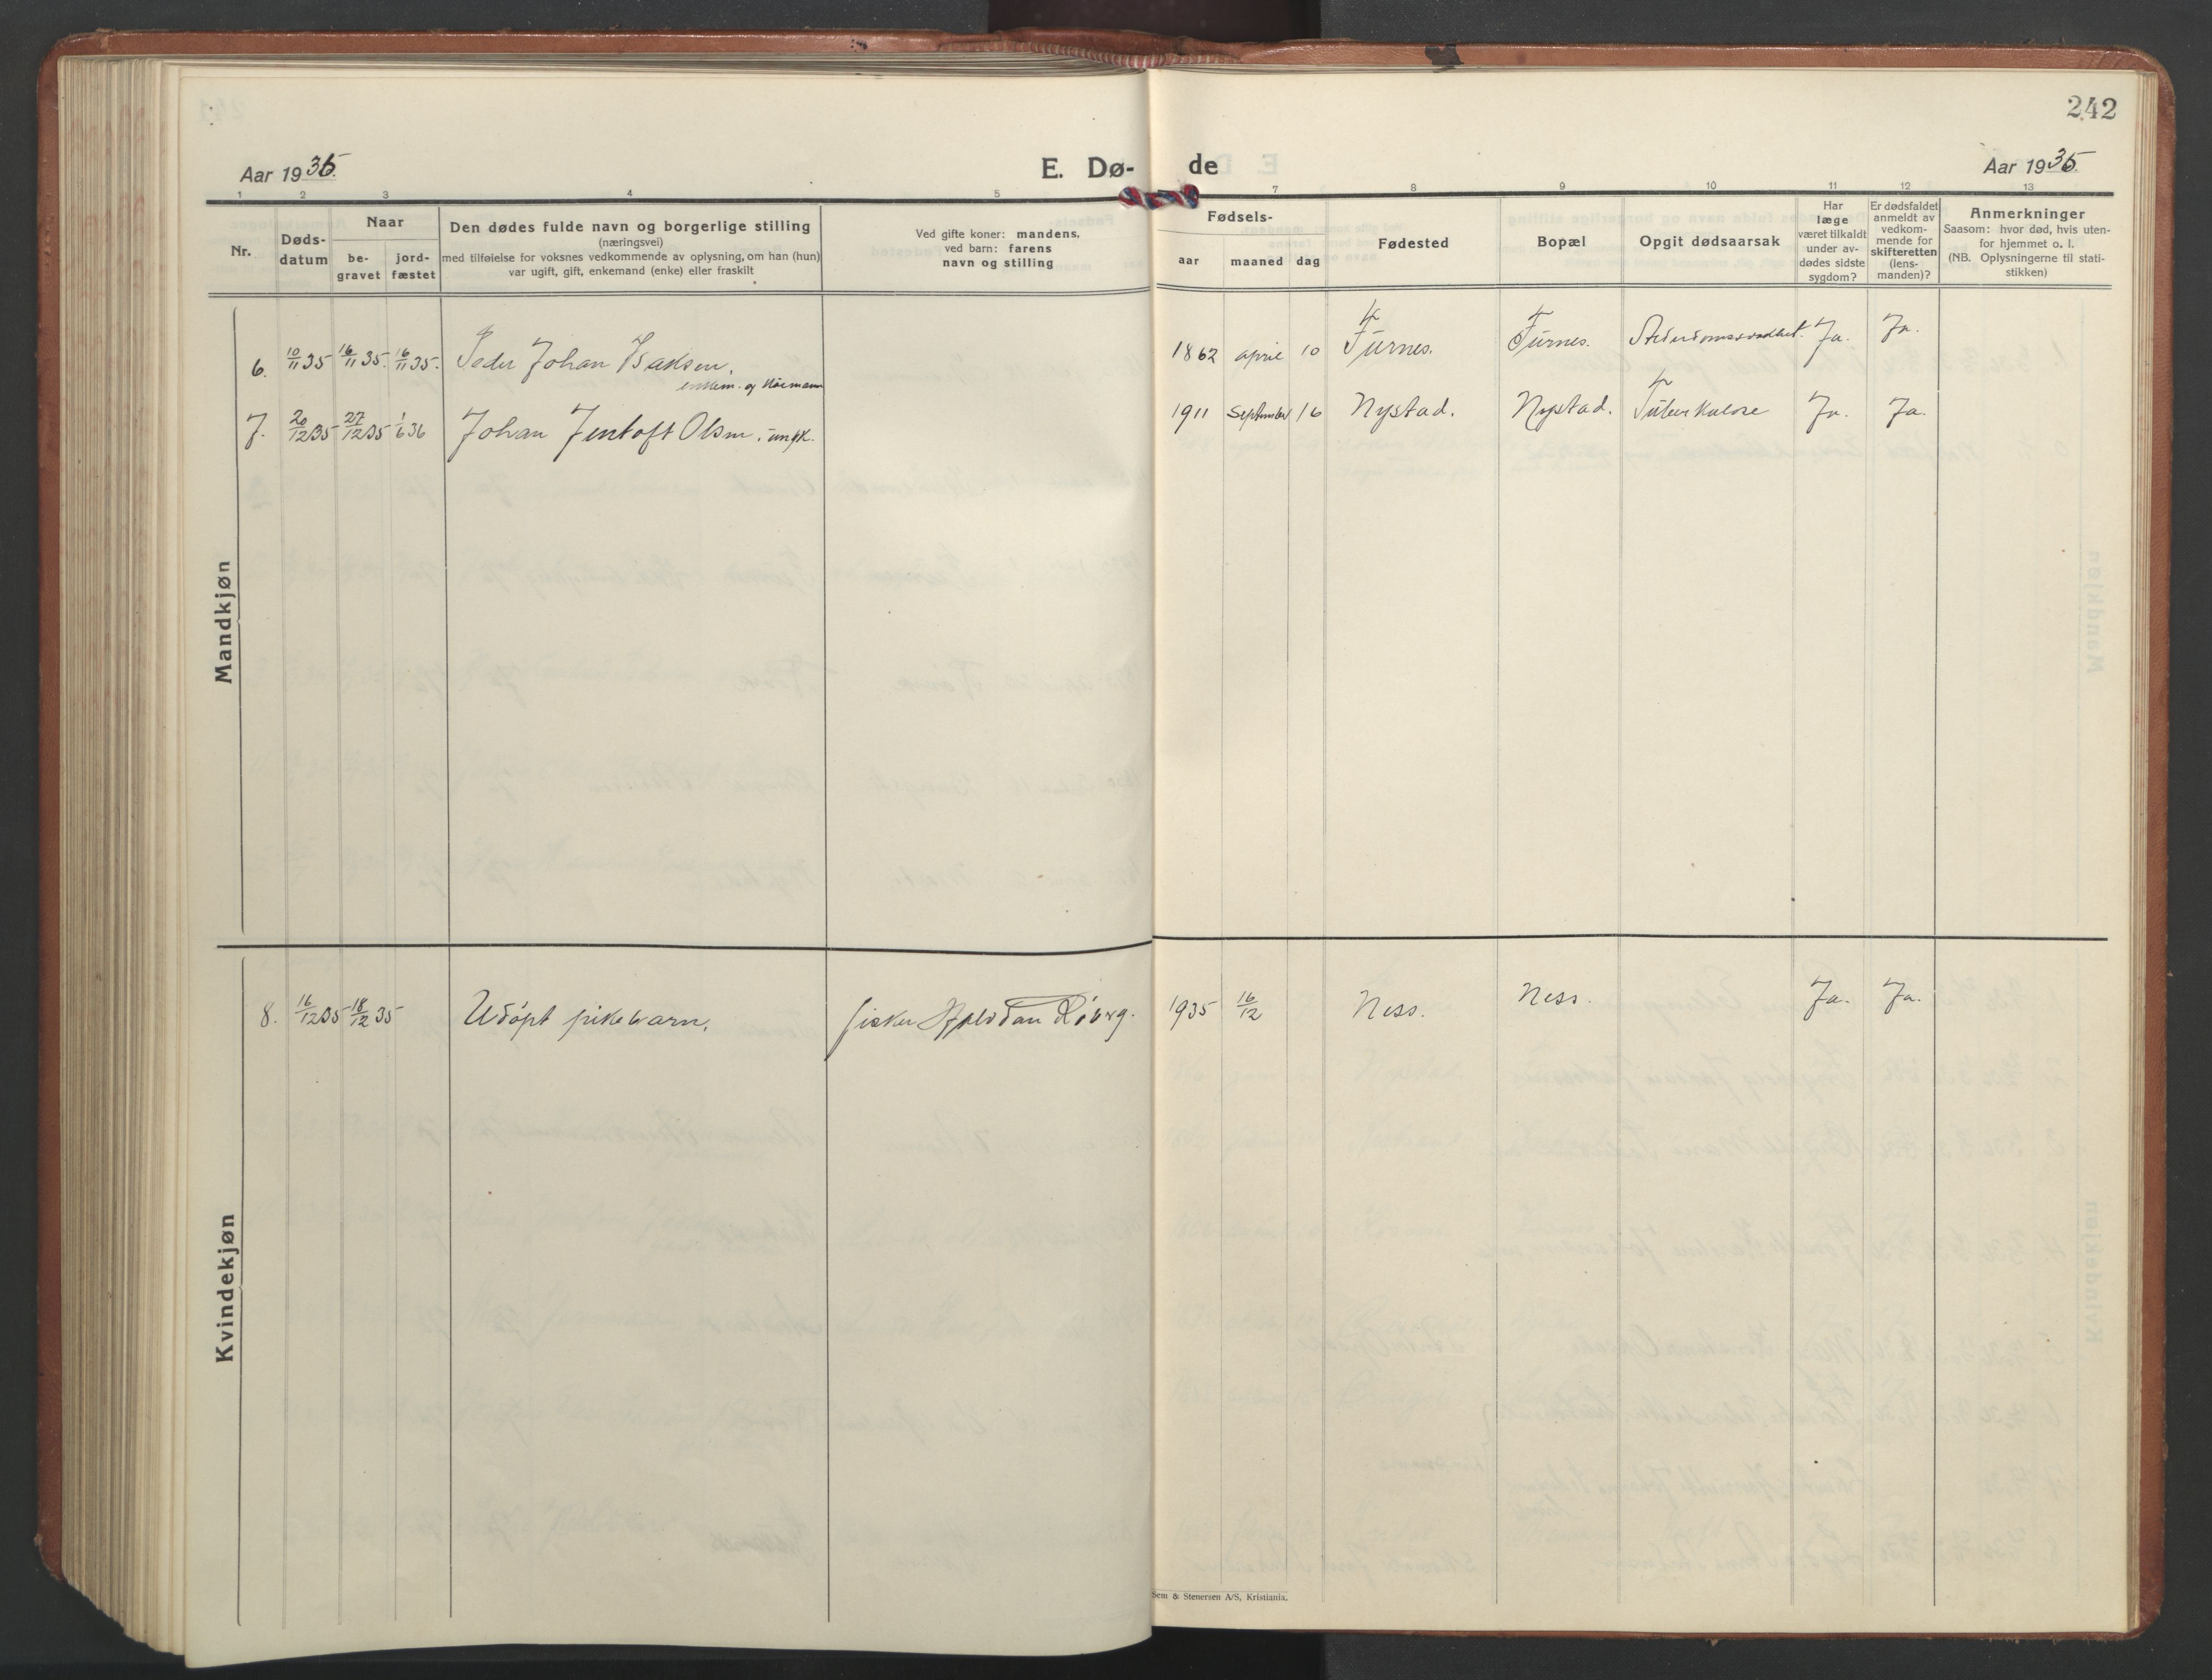 242
Aar 1935.
E. Dø- de
Aar 1935.
1 2 3 4 5 7 8 9 10 11 12 13
Nr.
Døds-
datum
Naar
be-
gravet
jord-
fæstet
Den dødes fulde navn og borgerlige stilling
(næringsvei)
med tilføielse for voksnes vedkommende av oplysning, om han (hun)
var ugift, gift, enkemand (enke) eller fraskilt
Ved gifte koner: mandens,
ved barn: farens
navn og stilling
Fødsels-
aar maaned dag
Fødested
Bopæl
Opgit dødsaarsak
Har
læge
været tilkaldt
under av-
dødes sidste
sygdom?
Er dødsfaldet
anmeldt av
vedkom-
mende for
skifteretten
(lens-
manden)?
Anmerkninger
Saasom: hvor død, hvis uten-
for hjemmet o. l.
(NB. Oplysningerne til stati-
stikken)
Mandkjøn
6. 10/11 35 16/11 35. 16/11 35. Peder Johan Isaksen, 1862 april 10 Furnes. Furnes. Ja. Ja.
enkem. og
7. 20/12 35 27/12 35 1/6 36 Johan Jentoft Olsen, ungk. 1911 September 16 Nystad. Nystad. Tuberkulose Ja. Ja.
Kvindekjøn
8. 16/12 35 18/12 35 Udøpt pikebarn. fisker Halvdan 1935 16/12 Ness. Ness. Ja. Ja.
Sem & Stenersen A/S, Kristiania.